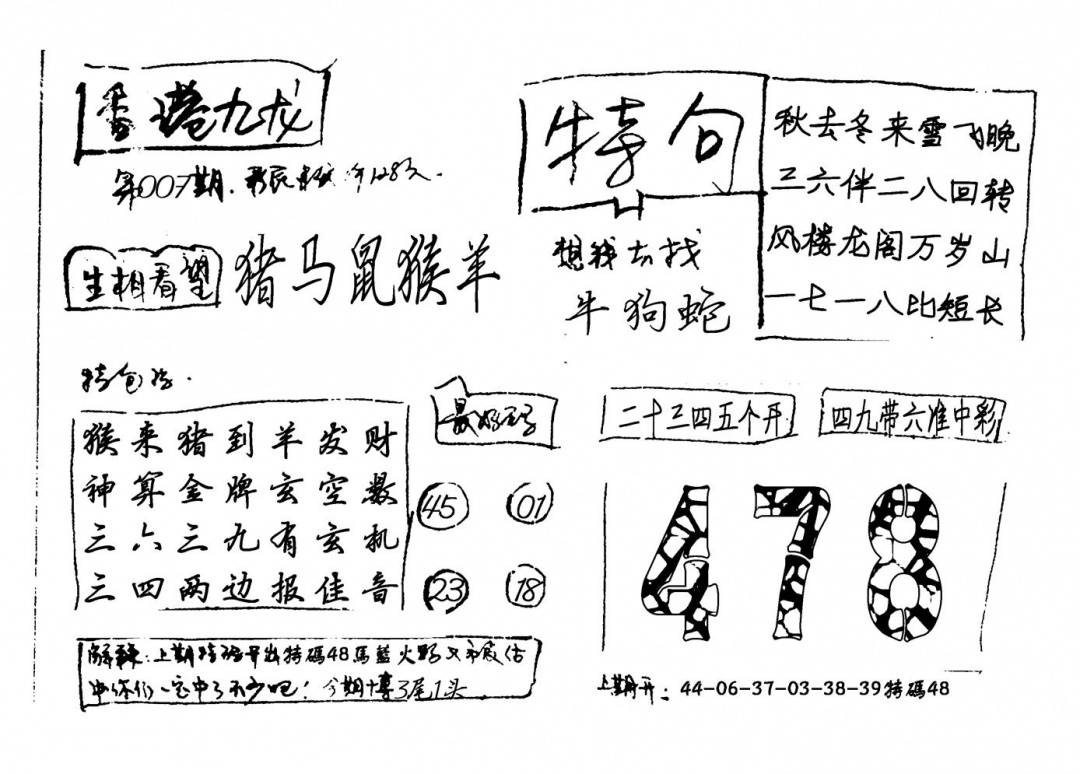 香港九龙
第007期.
生相看望
猪马鼠猴羊
特句
想我去找
牛狗蛇
秋去冬来雪飞晚
三六伴二八回转
风楼龙阁万岁山
一七一八比短长
特包
猴来猪到羊发财
神算金牌玄空数
三六三九有玄机
三四两边报佳音
最好
45 01
23 18
二十三四五个开
四九带六准中彩
478
解释:上期特码开出特碼48馬藍火野又
中你们一定中了不少吧!今期博3尾1头
上期开: 44-06-37-03-38-39特碼48